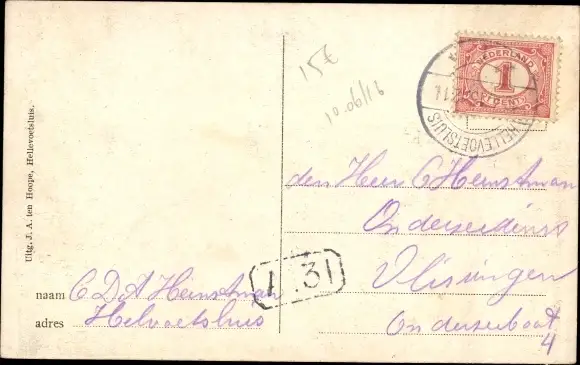 Uitg. J. A. ten Hoope, Hellevoetsluis.
15€
NEDERLAND
1
CENT
HELLEVOETSLUIS
den Heer C Heinstman
Onderzeedienst
Vlissingen
Onderzeeboot
4
1.31
naam C D A Heinstman
adres Helvoetsluis